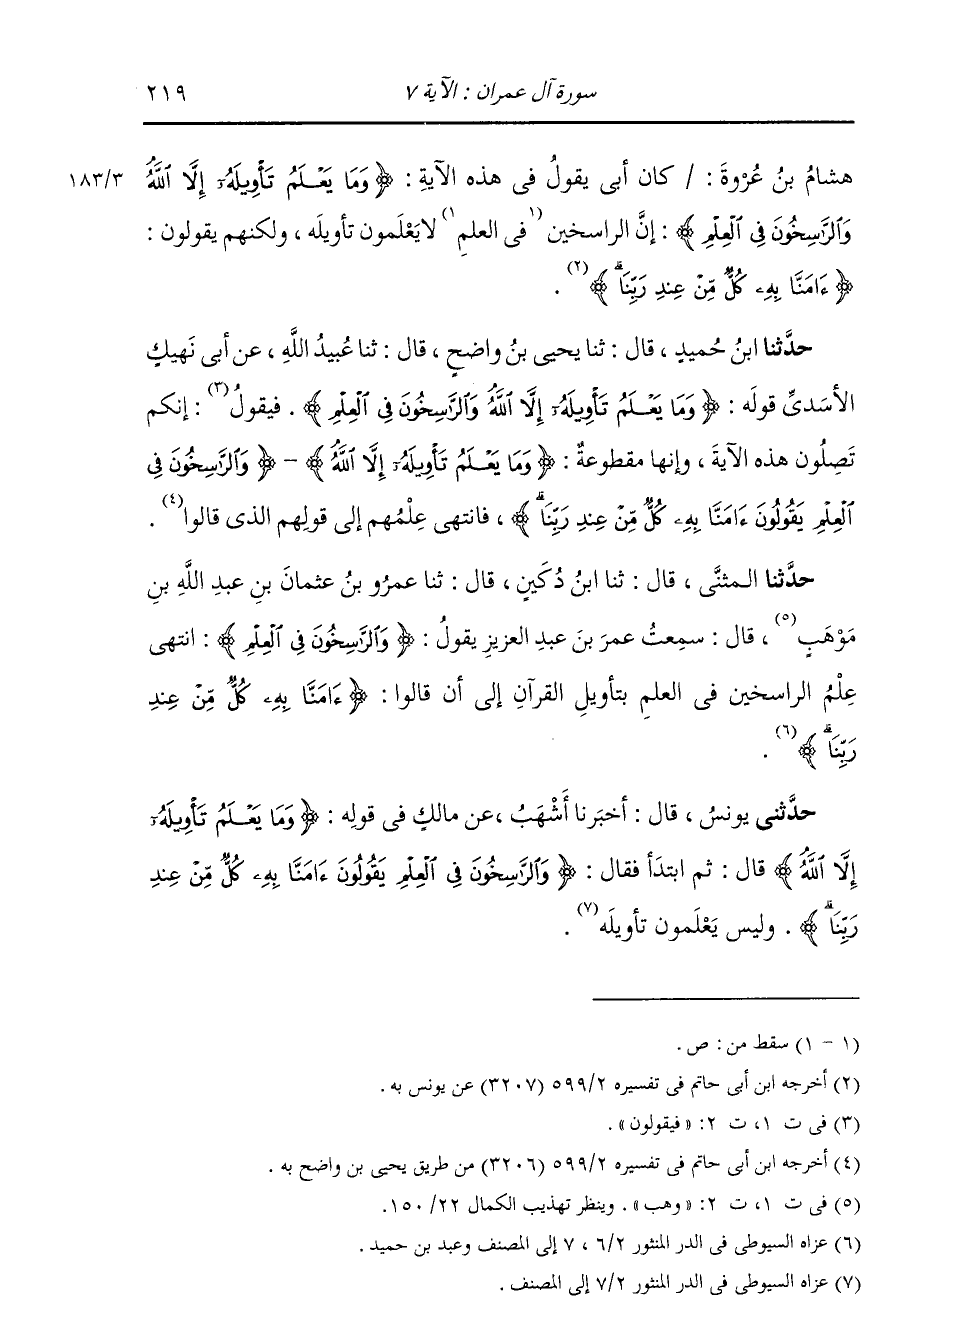 سورة آل عمران : الآية ٧ ٢١٩
هشامُ بنُ عُرْوةَ : / كان أبى يقولُ فى هذه الآيةِ : ﴿ وَمَا يَعْلَمُ تَأْوِيلَهُۥٓ إِلَّا ٱللَّهُ ١٨٣/٣
وَٱلرَّٰسِخُونَ فِى ٱلْعِلْمِ ﴾ : إنَّ الراسخين (١) فى العلمِ (١) لا يَعْلَمون تأويلَه ، ولكنهم يقولون :
﴿ ءَامَنَّا بِهِۦ كُلٌّ مِّنْ عِندِ رَبِّنَاۗ ﴾ (٢) .
حدَّثنا ابنُ حُميدٍ ، قال : ثنا يحيى بنُ واضحٍ ، قال : ثنا عُبيدُ اللَّهِ ، عن أبى نَهيكٍ
الأسَدىِّ قولَه : ﴿ وَمَا يَعْلَمُ تَأْوِيلَهُۥٓ إِلَّا ٱللَّهُ وَٱلرَّٰسِخُونَ فِى ٱلْعِلْمِ ﴾ . فيقولُ (٣) : إنكم
تَصِلُون هذه الآيةَ ، وإنها مقطوعةٌ : ﴿ وَمَا يَعْلَمُ تَأْوِيلَهُۥٓ إِلَّا ٱللَّهُ ﴾ – ﴿ وَٱلرَّٰسِخُونَ فِى
ٱلْعِلْمِ يَقُولُونَ ءَامَنَّا بِهِۦ كُلٌّ مِّنْ عِندِ رَبِّنَاۗ ﴾ ، فانتهى عِلْمُهم إلى قولِهم الذى قالوا (٤) .
حدَّثنا المثنَّى ، قال : ثنا ابنُ دُكَينٍ ، قال : ثنا عمرُو بنُ عثمانَ بنِ عبدِ اللَّهِ بنِ
مَوْهَبٍ (٥) ، قال : سمِعتُ عمرَ بنَ عبدِ العزيزِ يقولُ : ﴿ وَٱلرَّٰسِخُونَ فِى ٱلْعِلْمِ ﴾ : انتهى
عِلْمُ الراسخين فى العلمِ بتأويلِ القرآنِ إلى أن قالوا : ﴿ ءَامَنَّا بِهِۦ كُلٌّ مِّنْ عِندِ
رَبِّنَاۗ ﴾ (٦) .
حدَّثنى يونسُ ، قال : أخبَرنا أَشْهَبُ ، عن مالكٍ فى قولِه : ﴿ وَمَا يَعْلَمُ تَأْوِيلَهُۥٓ
إِلَّا ٱللَّهُ ﴾ قال : ثم ابتدَأ فقال : ﴿ وَٱلرَّٰسِخُونَ فِى ٱلْعِلْمِ يَقُولُونَ ءَامَنَّا بِهِۦ كُلٌّ مِّنْ عِندِ
رَبِّنَاۗ ﴾ . وليس يَعْلَمون تأويلَه (٧) .
(١ – ١) سقط من : ص .
(٢) أخرجه ابن أبى حاتم فى تفسيره ٥٩٩/٢ (٣٢٠٧) عن يونس به .
(٣) فى ت ١، ت ٢: « فيقولون » .
(٤) أخرجه ابن أبى حاتم فى تفسيره ٥٩٩/٢ (٣٢٠٦) من طريق يحيى بن واضح به .
(٥) فى ت ١، ت ٢: « وهب » . وينظر تهذيب الكمال ٢٢/ ١٥٠.
(٦) عزاه السيوطى فى الدر المنثور ٦/٢ ، ٧ إلى المصنف وعبد بن حميد .
(٧) عزاه السيوطى فى الدر المنثور ٧/٢ إلى المصنف .